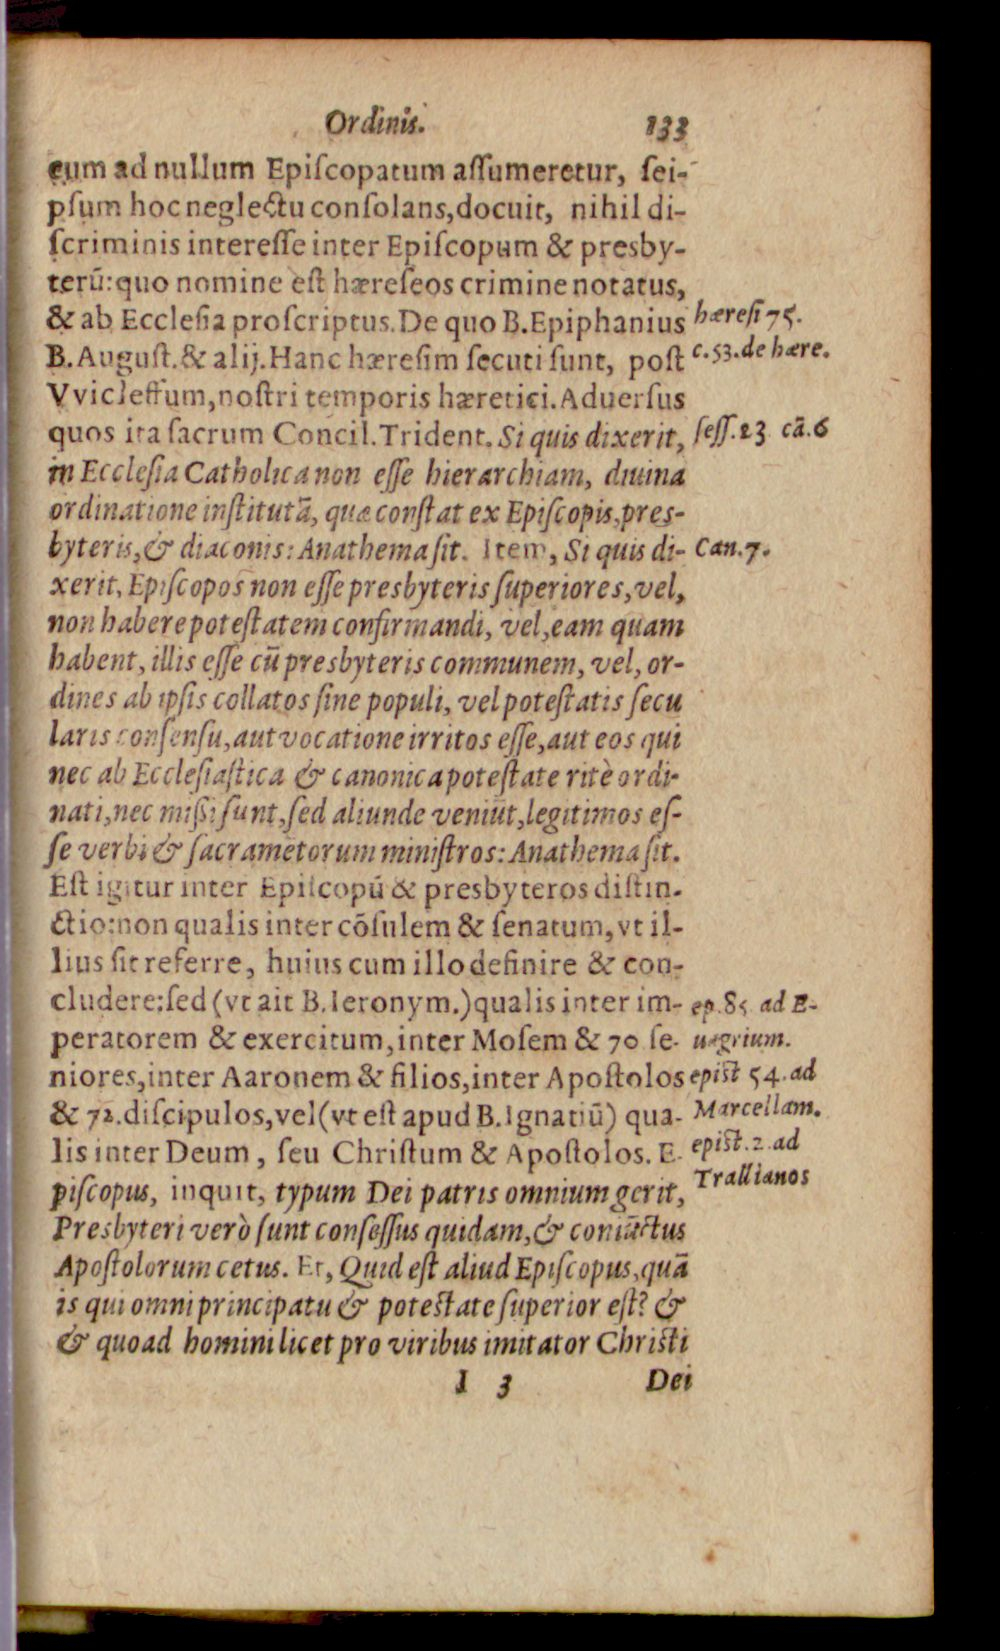 Ordinis. 133
cum ad nullum Epiſcopatum aſſumeretur, ſei-
pſum hoc neglectu conſolans, docuit, nihil di-
ſcriminis intereſſe inter Epiſcopum & presby-
terū: quo nomine eſt hæreſeos crimine notatus,
& ab Eccleſia proſcriptus. De quo B. Epiphanius
hæreſi 75.
B. Auguſt. & alij. Hanc hæreſim ſecuti ſunt, poſt
c. 53. de hære.
Vvicleffum, noſtri temporis hæretici. Aduerſus
quos ita ſacrum Concil. Trident. Si quis dixerit,
ſeſſ. 23 cā. 6
in Eccleſia Catholica non eſſe hierarchiam, diuina
ordinatione inſtitutā, quæ conſtat ex Epiſcopis, pres-
byteris, & diaconis: Anathema ſit. Item, Si quis di-
Can. 7.
xerit, Epiſcopos non eſſe presbyteris ſuperiores, vel,
non habere poteſtatem confirmandi, vel, eam quam
habent, illis eſſe cū presbyteris communem, vel, or-
dines ab ipſis collatos ſine populi, vel poteſtatis ſecu
laris conſenſu, aut vocatione irritos eſſe, aut eos qui
nec ab Eccleſiaſtica & canonica poteſtate ritè ordi-
nati, nec miſſi ſunt, ſed aliunde veniūt, legitimos eſ-
ſe verbi & ſacramētorum miniſtros: Anathema ſit.
Eſt igitur inter Epiſcopū & presbyteros diſtin-
ctio: non qualis inter cōſulem & ſenatum, vt il-
lius ſit referre, huius cum illo definire & con-
cludere: ſed (vt ait B. Ieronym.) qualis inter im-
ep. 85 ad E-
peratorem & exercitum, inter Moſem & 70 ſe-
uagrium.
niores, inter Aaronem & filios, inter Apoſtolos
epiſt 54. ad
& 72. diſcipulos, vel (vt eſt apud B. Ignatiū) qua-
Marcellam.
lis inter Deum, ſeu Chriſtum & Apoſtolos. E-
epiſt. 2. ad
piſcopus, inquit, typum Dei patris omnium gerit,
Trallianos
Presbyteri verò ſunt conſeſſus quidam, & coniūctus
Apoſtolorum cetus. Et, Quid eſt aliud Epiſcopus, quā
is qui omni principatu & poteſtate ſuperior eſt? &
& quoad homini licet pro viribus imitator Chriſti
I 3 Dei